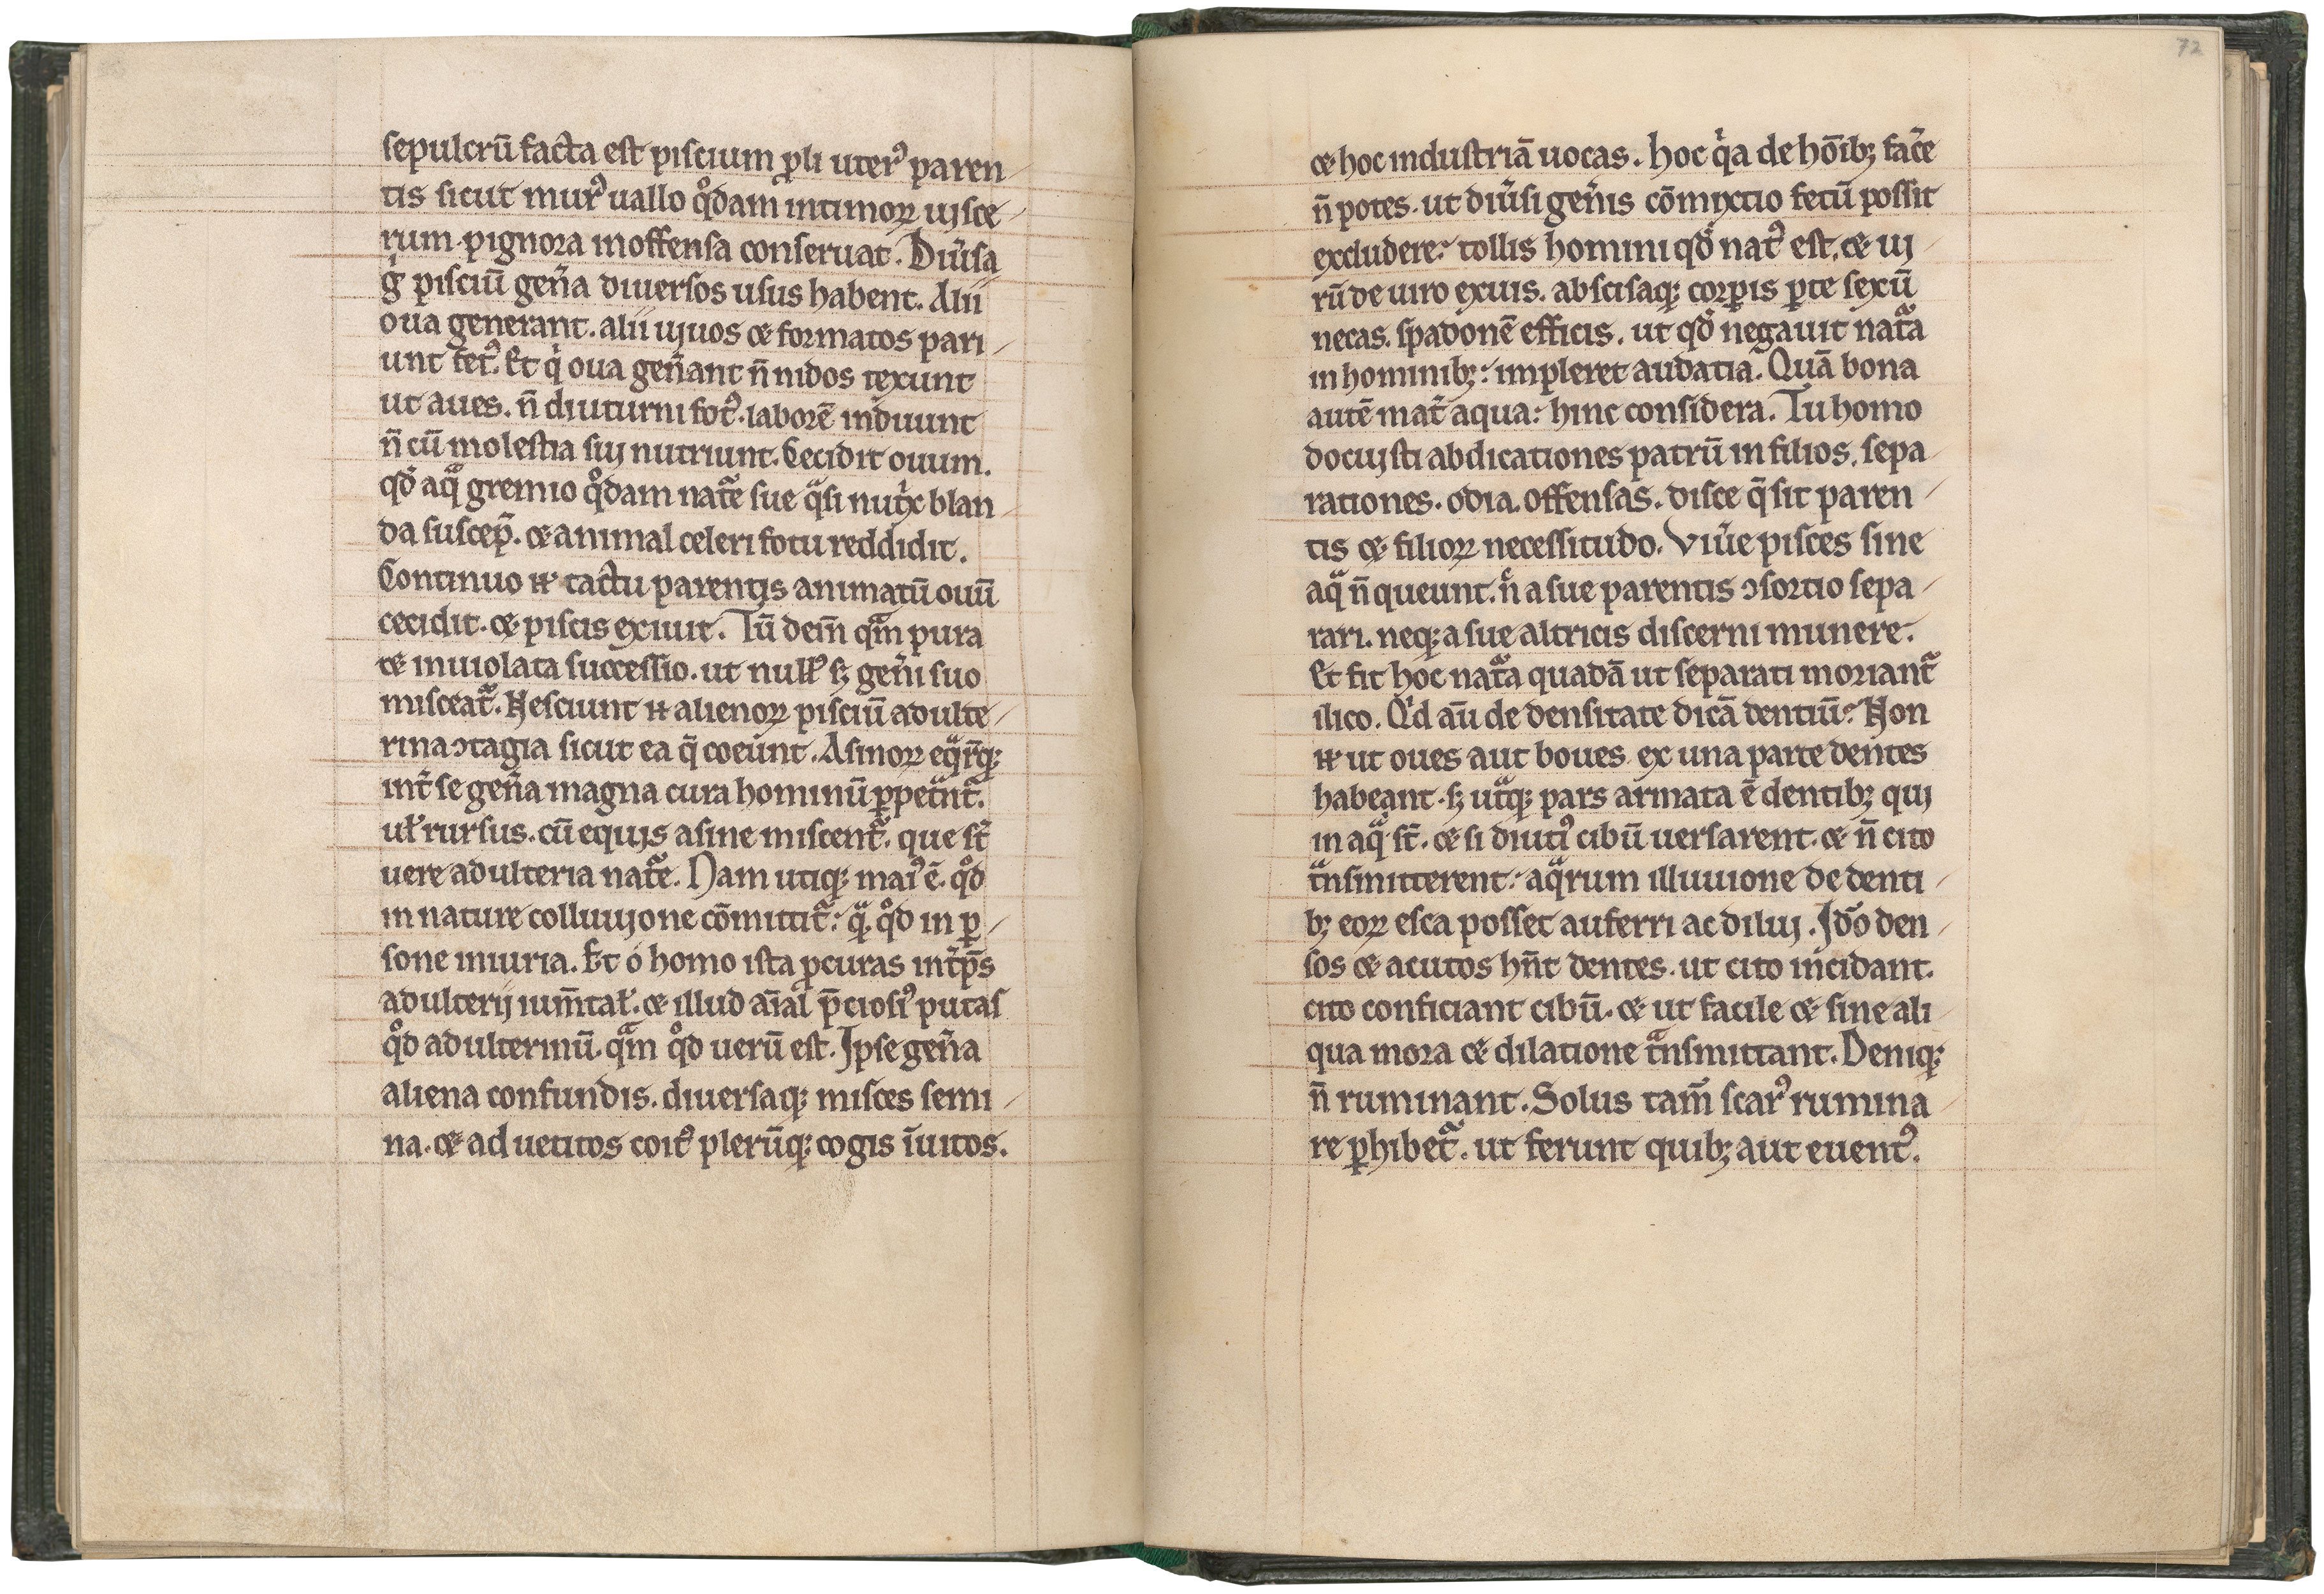 sepulcrū facta est piscium ꝓli uterꝰ paren
tis sicut murꝰ uallo qͦdam intimoꝝ uisce
rum pignora inoffensa conseruat. Diu͛sa
gͥ pisciū gen͛a diuersos usus habent. Alii
oua generant. alii uiuos ⁊ formatos pari
unt fetꝰ. Et qͥ oua gen͛ant n̄ nidos texunt
ut aues. n̄ diuturni fotꝰ laborē induunt
n̄ cū molestia sui nutriunt. Cecidit ouum.
qđ aqͣ gremio qͦdam natͣe sue qͣsi nutͥx blan
da suscep̄. ⁊ animal celeri fotu reddidit.
Continuo .n. tactu parentis animatū ouū
cecidit. ⁊ piscis exiuit. Tū dem̄ qͣm pura
⁊ inuiolata successio. ut nullꝰ sꝫ gen͛i suo
misceatͣ. Nesciunt .n. alienoꝝ pisciū adulte
rina ꝯtagia sicut ea q̄ coeunt. Asinoꝝ eqͣꝝqꝫ
int͛ se gen͛a magna cura hominū ꝑpetͣntͣ.
uł rursus. cū equis asine miscentͣ. que st͛
uere adulteria natͣe. Nam utiqꝫ maiꝰ ē. qͦd
in nature colluuione cōmittitͣ: qͣ. qͦd in ꝑ
sone iniuria. Et o homo ista ꝓcuras int͛p̄s
adulterij ium̄tał. ⁊ illud aīal p̄ciosiꝰ putas
qͦd adulterinū. qͣm qͦd uerū est. Ipse gen͛a
aliena confundis. diuersaqꝫ misces semi
na. ⁊ ad uetitos coitꝰ plerūqꝫ cogis īuitos.
72
⁊ hoc industriā uocas. hoc qͥa de hōibꝫ fac͛e
n̄ potes. ut diu͛si gen͛is cōmixtio fetū possit
excludere: tollis homini qđ natꝰ est. ⁊ ui
rū de uiro exuis. abscisaqꝫ corꝑis ꝑte sexū
necas. spadonē efficis. ut qđ negauit natͣa
in hominibꝫ: impleret audatia. Quā bona
autē mat͛ aqua: hinc considera. Tu homo
docuisti abdicationes patrū in filios. sepa
rationes. odia. offensas. disce q̄ sit paren
tis ⁊ filioꝝ necessitudo. Viu͛e pisces sine
aqͣ n̄ queunt. n̄ a sue parentis ꝯsortio sepa
rari. neqꝫ a sue altricis discerni munere.
Et fit hoc natͣa quadā ut separati moriantͣ
ilico. Qͥd aū de densitate dicā dentiū: Non
.n. ut oues aut boues ex una parte dentes
habeant. sꝫ utͣqꝫ pars armata ē dentibꝫ qui
in aqͣ st͛. ⁊ si diutiꝰ cibū uersarent. ⁊ n̄ cito
tͣnsmitterent: aqͣrum illuuione de denti
bꝫ eoꝝ esca posset auferri ac dilui. Idō den
sos ⁊ acutos hn̄t dentes. ut cito incidant.
cito conficiant cibū. ⁊ ut facile ⁊ sine ali
qua mora ⁊ dilatione tͣnsmittant. Deniqꝫ
n̄ ruminant. Solus tam̄ scarꝰ rumina
re ꝑhibetͣ. ut ferunt quibꝫ aut euentꝰ.